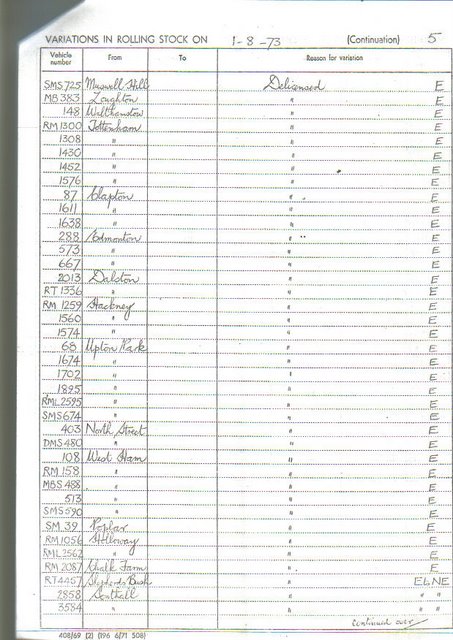 VARIATIONS IN ROLLING STOCK ON 1-8-73 (Continuation) 5
Vehicle number From To Reason for variation
SMS 725 Muswell Hill Delicensed E
MB 383 Loughton " E
148 Walthamstow " E
RM 1300 Tottenham " E
1308 " " E
1430 " " E
1452 " " E
1576 " " E
87 Clapton " E
1611 " " E
1638 " " E
288 Edmonton " E
573 " " E
667 " " E
2013 Dalston " E
RT 1336 " " E
RM 1259 Hackney " E
1560 " " E
1574 " " E
68 Upton Park " E
1674 " " E
1702 " " E
1895 " " E
RML 2595 " " E
SMS 674 " " E
403 North Street " E
DMS 480 " " E
108 West Ham " E
RM 158 " " E
MBS 488 " " E
513 " " E
SMS 590 " " E
SM 39 Poplar " E
RM 1056 Holloway " E
RML 2562 " " E
RM 2087 Chalk Farm " E
RT 4457 Shepherds Bush " E6NE
2858 Southall " " "
3584 " " " "
continued over
408/69 (2) (196 6/71 508)